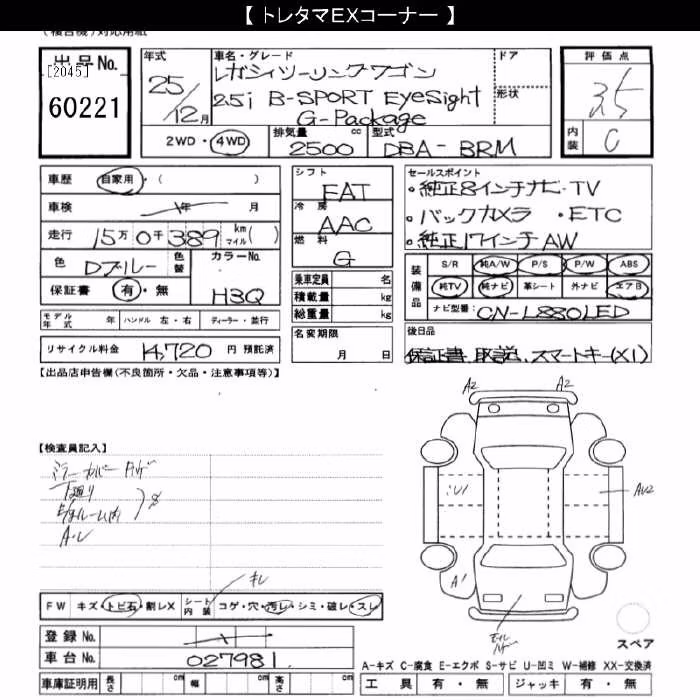 【 トレタマEXコーナー 】
対応用紙
出品No.
[2045]
60221
年式
25/12月
車名・グレード
レガシィツーリングワゴン
2.5i B-SPORT EyeSight
G-Package
ドア
形状
評価点
3.5
内装 C
2WD・4WD
排気量 2500 cc
型式 DBA- BRM
車歴 自家用・( )
車検 年 月
走行 15万0千389 km マイル( )
色 Dブルー 色替
カラーNo. H3Q
保証書 有・無
モデル年式 年 ハンドル 左・右 ディーラー・並行
リサイクル料金 14,720 円 預託済
シフト FAT
冷房 AAC
燃料 G
乗車定員 名
積載量 kg
総重量 kg
名変期限
月 日
セールスポイント
・純正8インチナビ・TV
・バックカメラ ・ETC
・純正17インチAW
装備品
S/R 純A/W P/S P/W ABS
純TV 純ナビ 革シート 外ナビ エアB
ナビ型番: CN-L880LED
後日品
保証書、取説、スマートキー(×1)
【出品店申告欄(不良箇所・欠品・注意事項等)】
【検査員記入】
ミラーカバー
下廻り
A・ル
A2 A2
AU2
A1
キレ
FW キズ・トビ石・割レX
シート内装 コゲ・穴・汚レ・シミ・破レ・スレ
登録No.
車台No. 027981
車庫証明用 長さ cm 幅 cm 高さ cm
スペア
A-キズ C-腐食 E-エクボ S-サビ U-凹ミ W-補修 XX-交換済
工具 有・無 ジャッキ 有・無